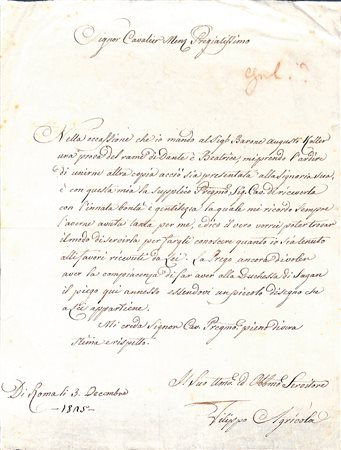 Signor Cavalier Menz Pregiatissimo
Nella occassione che io mando al Sig.r Barone Augusti Koller
una prova del rame di Dante è Beatrice, mi prendo l'ardire
di unirne altra copia acciò sia presentata alla Signoria Sua,
è con questa mia la supplico Pregmo Sig. Cav. di riceverla
con l'innata bontà è gentilezza la quale mi ricordo sempre
l'averne avuta tanta per me, è dico il vero vorrei poter trovar
il modo di servirla per fargli conoscere quanto io sia tenuto
alli favori ricevuti da Lei. La prego ancora di voler
aver la compiacenza di far aver alla Duchessa di Sagan
il piego qui annesso essendovi un piccolo disegno che
a Lei appartiene.
Mi creda Signor Cav. Pregmo pieno di vera
stima e rispetto.
Di Roma li 3. Decembre
Il Suo Umo ed Obbmo Servitore
Filippo Agricola